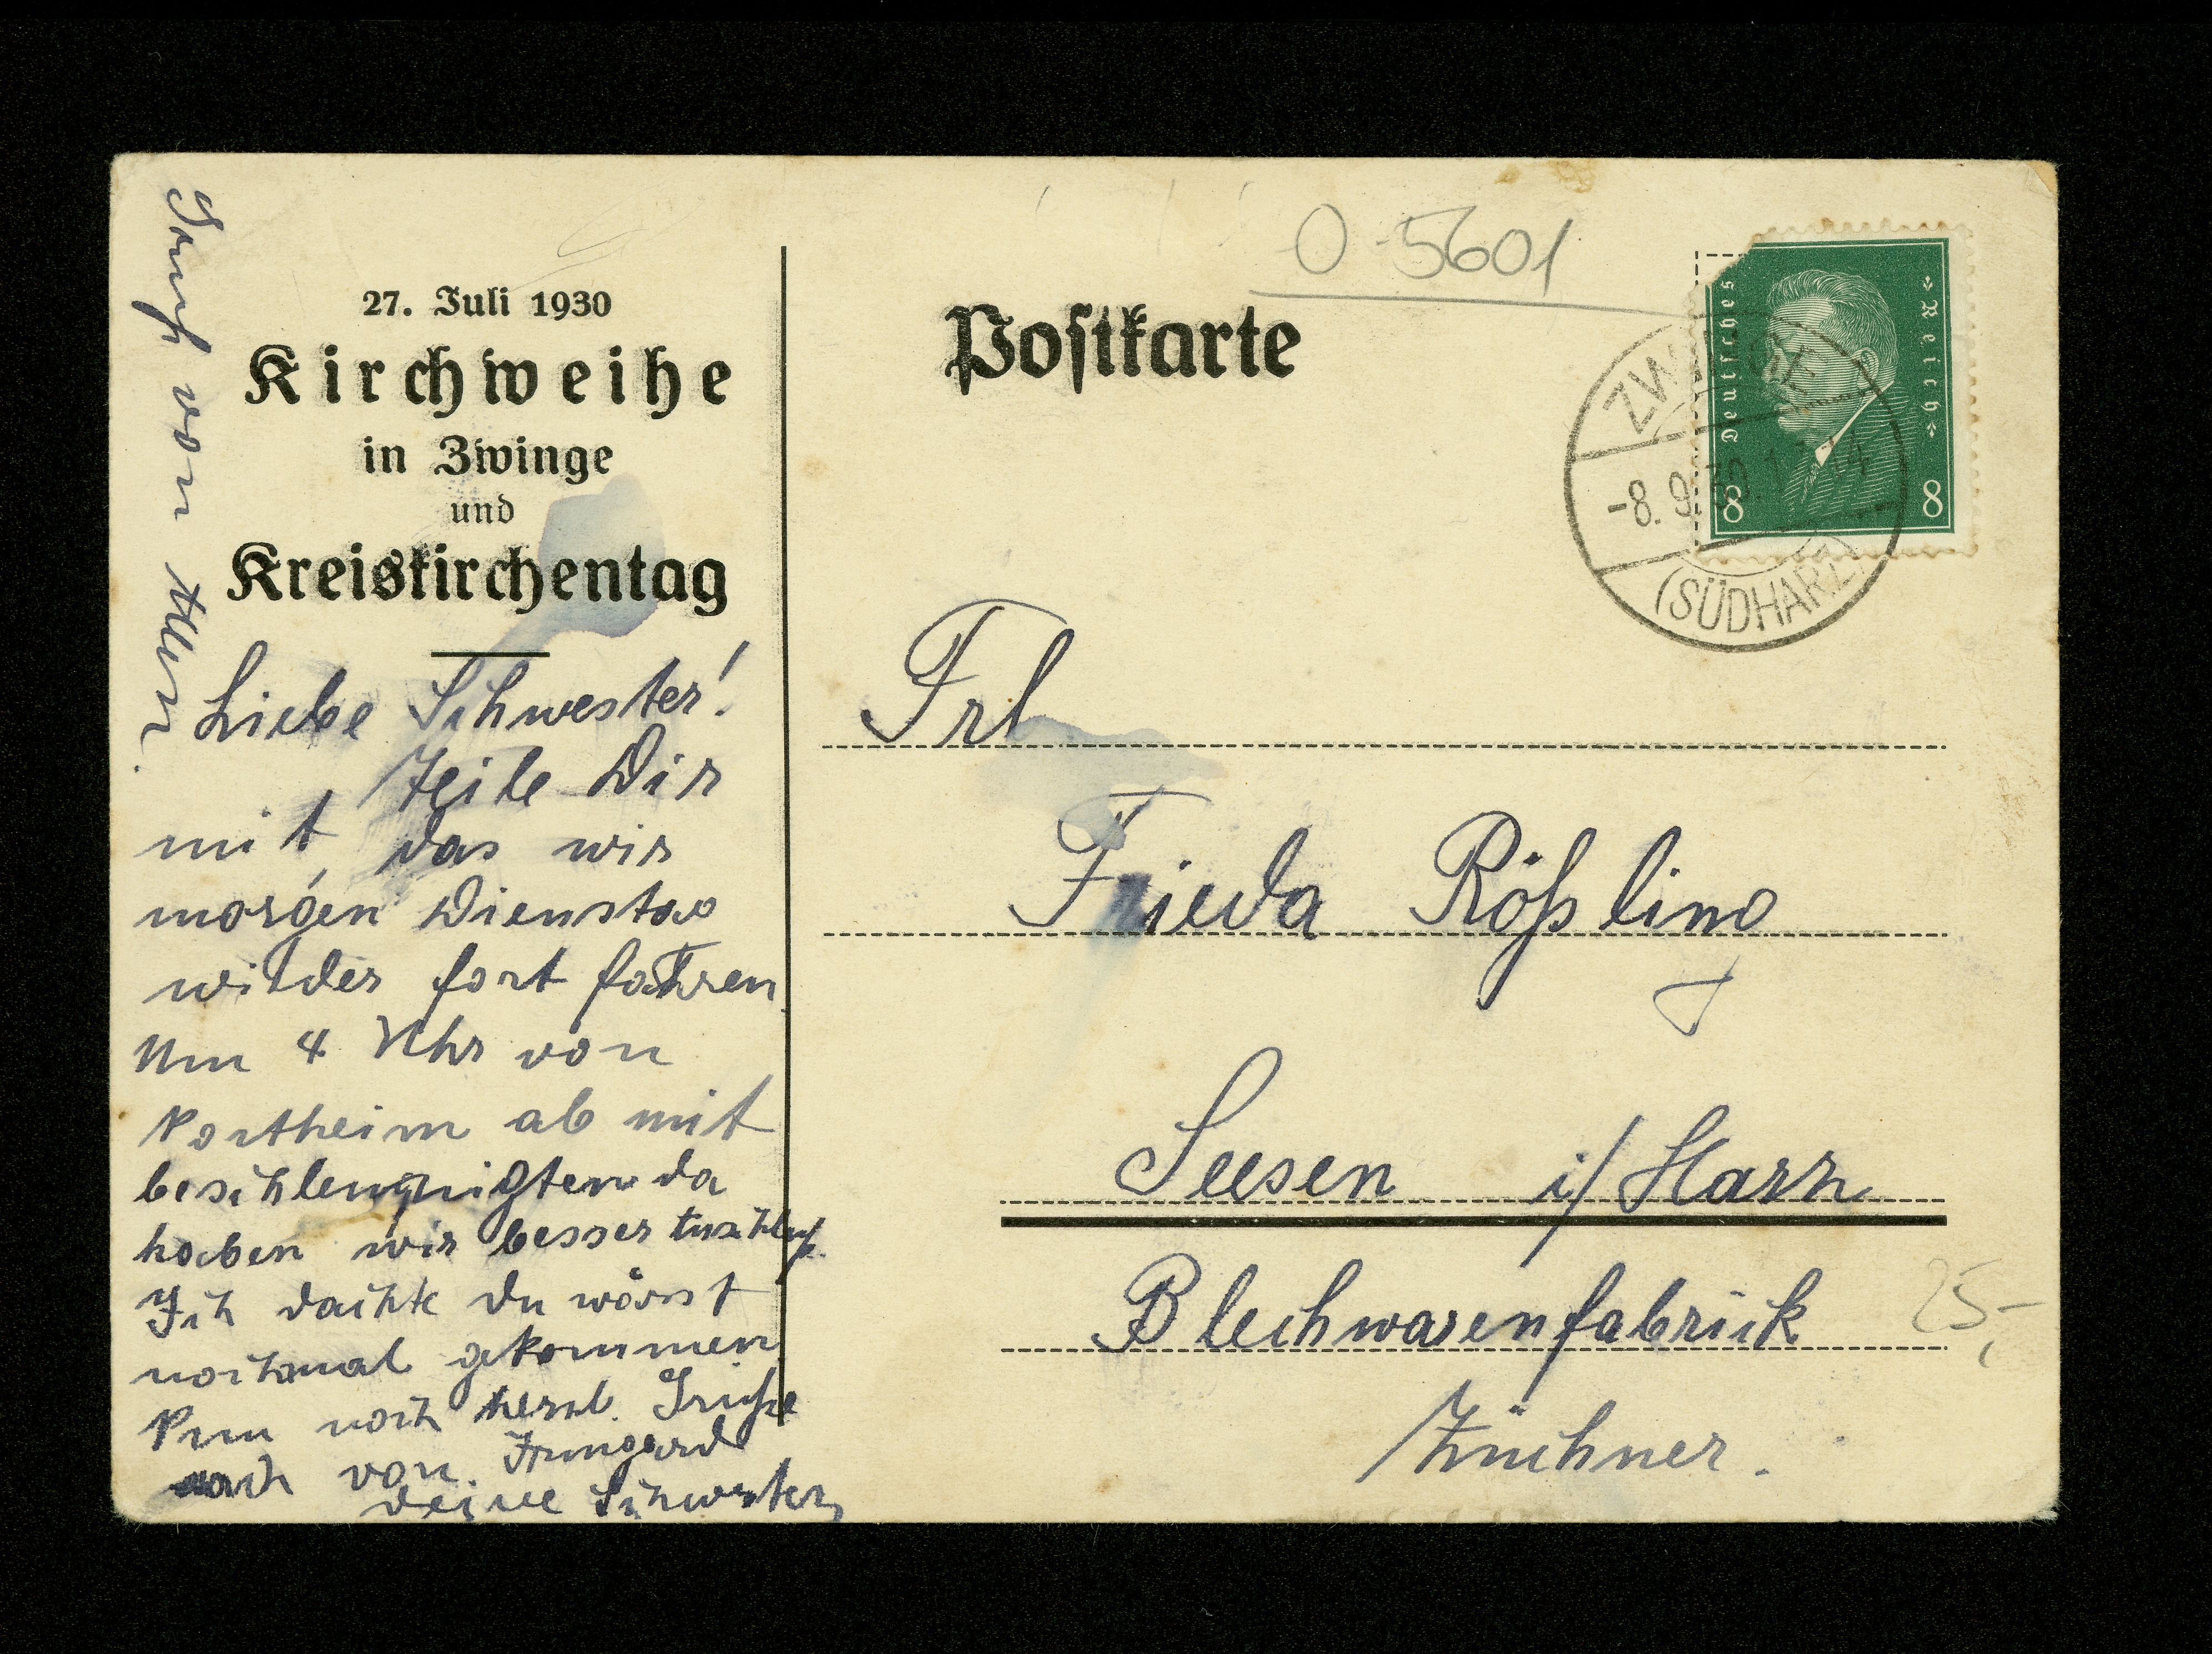 27. Juli 1930
Kirchweihe
in Zwinge
und
Kreiskirchentag
Liebe Schwester!
Teile Dir
mit, das wir
morgen Dienstag
wieder fort fahren
Um 4 Uhr von
Northeim ab mit
da
haben wir besser
Ich dachte du wärst
nochmal gekommen
Nun noch herzl. Grüße
auch von Irmgard
deine Schwester
von Allen.
Postkarte
O-5601
Deutsches Reich
8 8
ZWINGE
-8.9.30.
(SÜDHARZ)
Frl
Frieda Rößling
Seesen i/Harz
Blechwarenfabrick
Züchner.
25,-